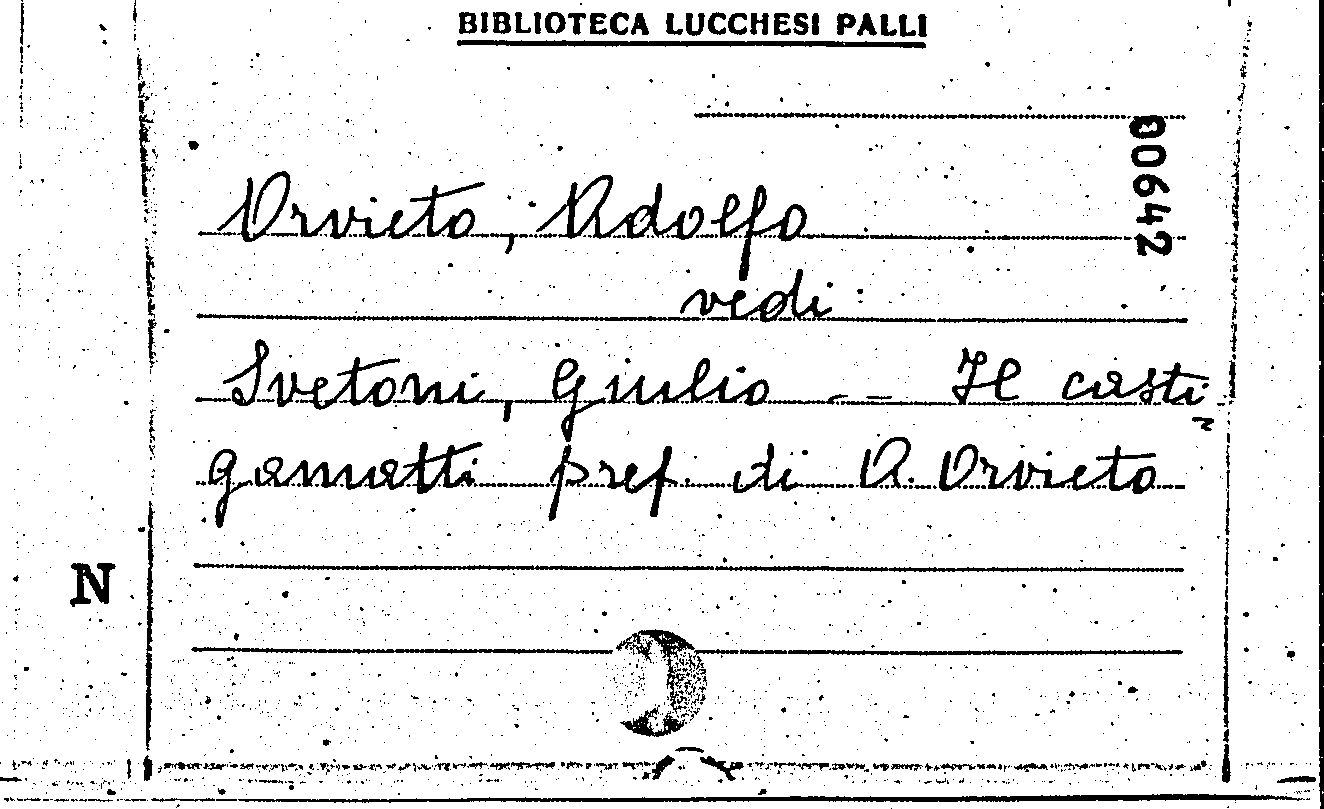 BIBLIOTECA LUCCHESI PALLI
00642
Orvieto, Adolfo
vedi:
Svetoni, Giulio -- Il casti
gamatti pref. di A. Orvieto
N